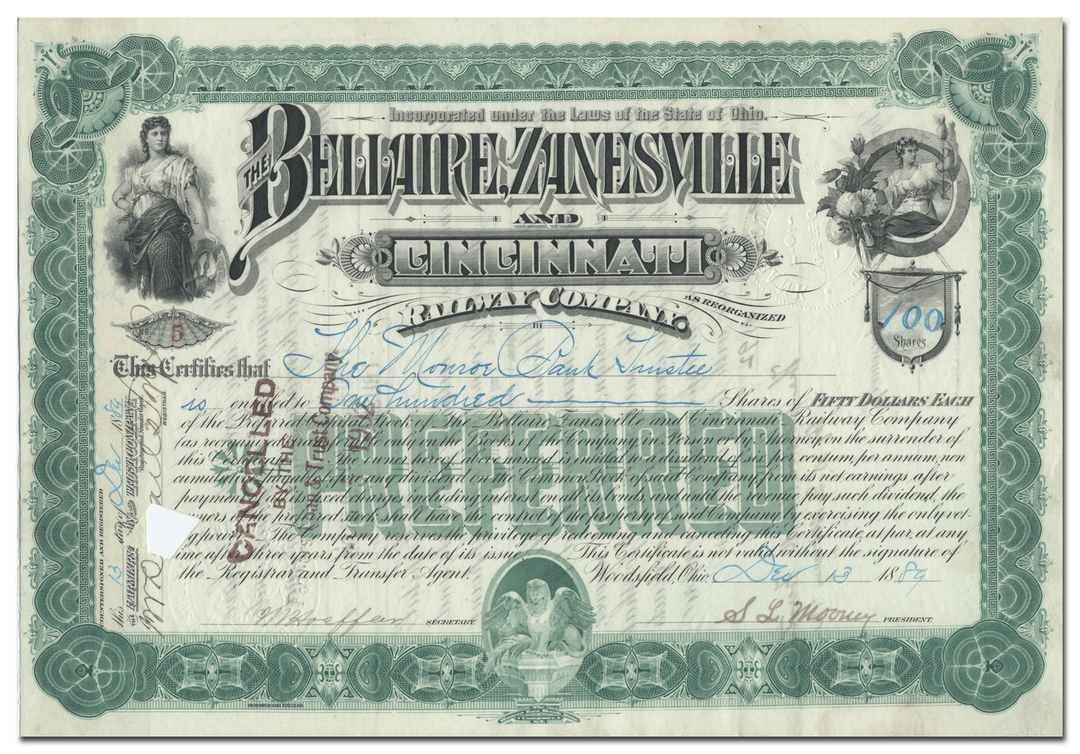 Incorporated under the Laws of the State of Ohio.
THE BELLAIRE, ZANESVILLE
AND
CINCINNATI
RAILWAY COMPANY.
AS REORGANIZED
No. 5
100
Shares
This Certifies that The Monroe Bank Trustee
is entitled to One hundred Shares of FIFTY DOLLARS EACH
of the Preferred Capital Stock of The Bellaire Zanesville and Cincinnati Railway Company
as reorganized transferable only on the Books of the Company in Person or by Attorney on the surrender of
this Certificate. The owner hereof is entitled to a dividend of six per centum, per annum, non
cumulative before any dividend on the common Stock is paid from its net earnings after
payment of fixed charges including interest on its bonds, and until the Company pay such dividend, the
owners of the preferred stock shall have the control of the property of said Company exercising the only vot-
ing power. The Company reserves the privilege of redeeming and canceling this Certificate, at par, at any
time after three years from the date of its issue. This Certificate is not valid without the signature of
the Registrar and Transfer Agent. Woodsfield, Ohio Dec 13 1889
SECRETARY.
S L Mooney PRESIDENT.
PREFERRED
CANCELLED
BY THE
Loan & Trust Company
COUNTERSIGNED AND REGISTERED
this 13 day of Dec 1889
THE FARMERS' LOAN AND TRUST COMPANY
REGISTRAR